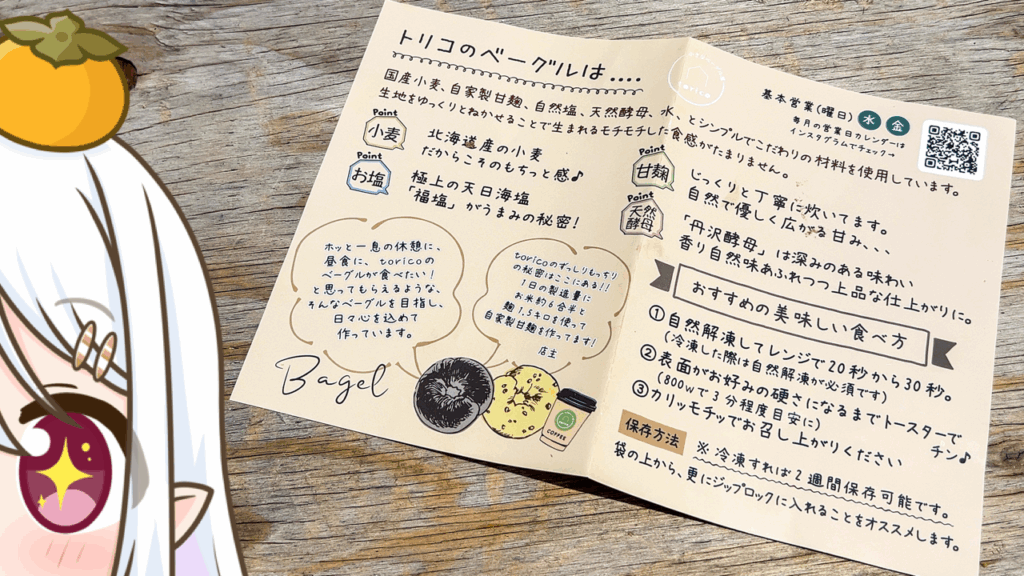 トリコのベーグルは....
国産小麦、自家製甘麹、自然塩、天然酵母、水、とシンプルでこだわりの材料を使用しています。
生地をゆっくりとねかせることで生まれるモチモチした食感がたまりません。
Point
小麦
北海道産の小麦
だからこそのもちっと感♪
Point
お塩
極上の天日海塩
「福塩」がうまみの秘密!
ホッと一息の休憩に、
昼食に、toricoの
ベーグルが食べたい!
と思ってもらえるような、
そんなベーグルを目指し、
日々心を込めて
作っています。
toricoのずっしりもっちり
の秘密はここにある!!
1日の製造量に
お米約6合半と
麹1.5キロを使って
自家製甘麹を作ってます!
店主
Bagel
COFFEE
torico
基本営業(曜日) 水 金
毎月の営業日カレンダーは
インスタグラムでチェック→
Point
甘麹
じっくりと丁寧に炊いてます。
自然で優しく広がる甘み、、、
Point
天然
酵母
「丹沢酵母」は深みのある味わい
香り自然味あふれつつ上品な仕上がりに。
おすすめの美味しい食べ方
①自然解凍してレンジで20秒から30秒。
(冷凍した際は自然解凍が必須です)
②表面がお好みの硬さになるまでトースターで
チン♪
(800wで3分程度目安に)
③カリッモチッでお召し上がりください
保存方法
※冷凍すれば2週間保存可能です。
袋の上から、更にジップロックに入れることをオススメします。